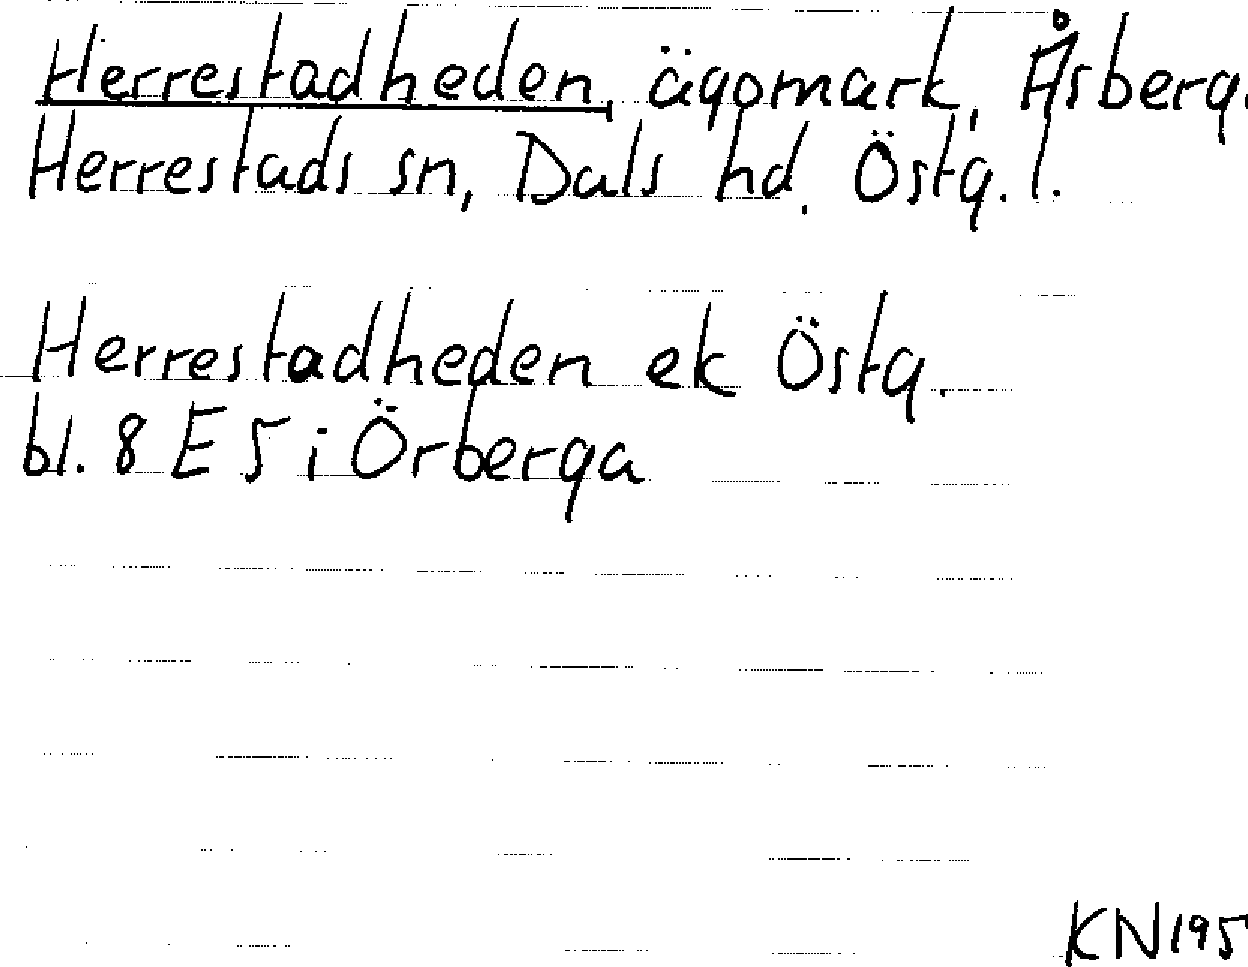 Herrestadheden, ägomark, Åsberg.
Herrestads sn, Dals hd. Östg. l.
Herrestadheden ek Östg.
bl. 8 E 5 i Örberga
KN195